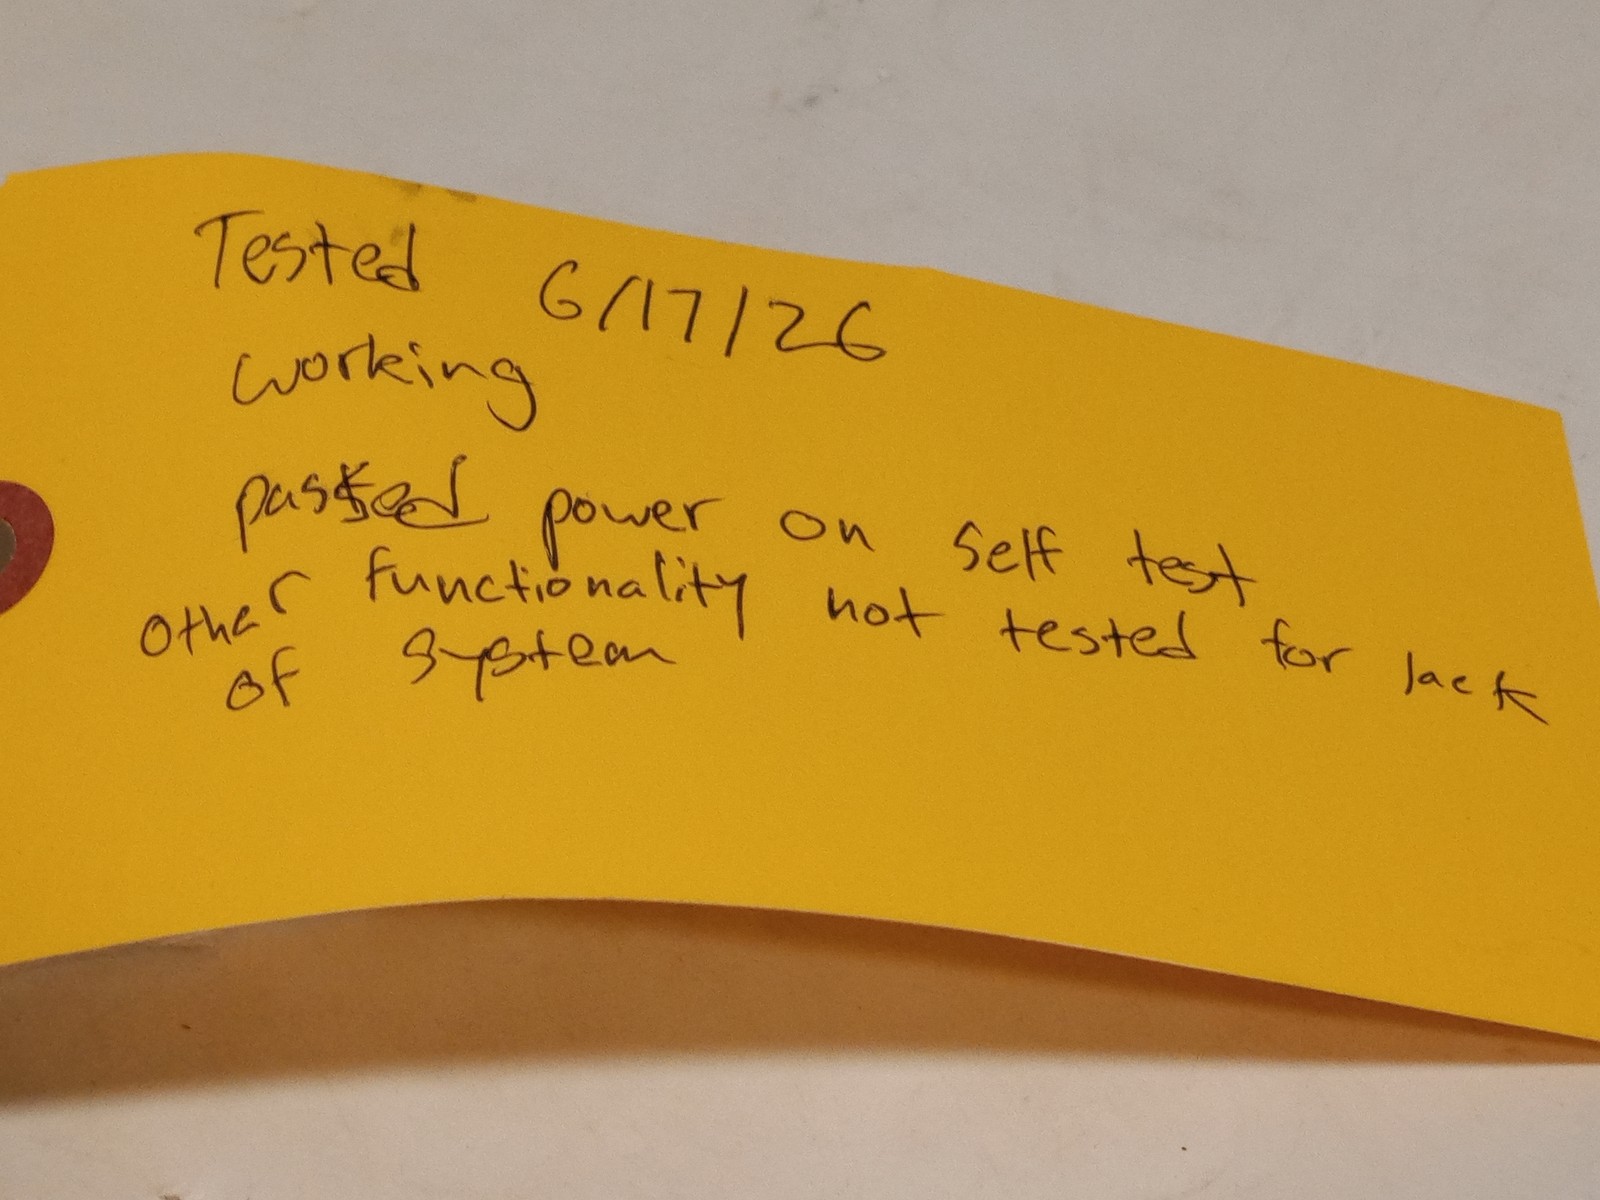 Tested 6/17/26
working
passed power on self test
other functionality not tested for lack
of system